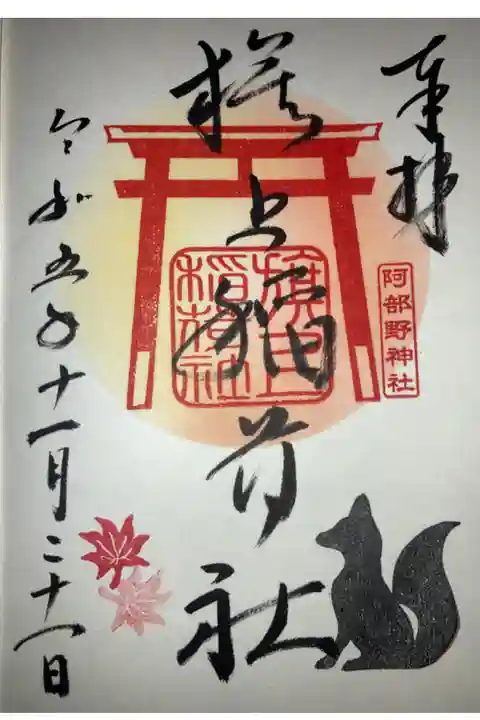 奉拝
旗上稲荷社
令和五年十一月二十一日
旗上
稲荷社
阿部野神社